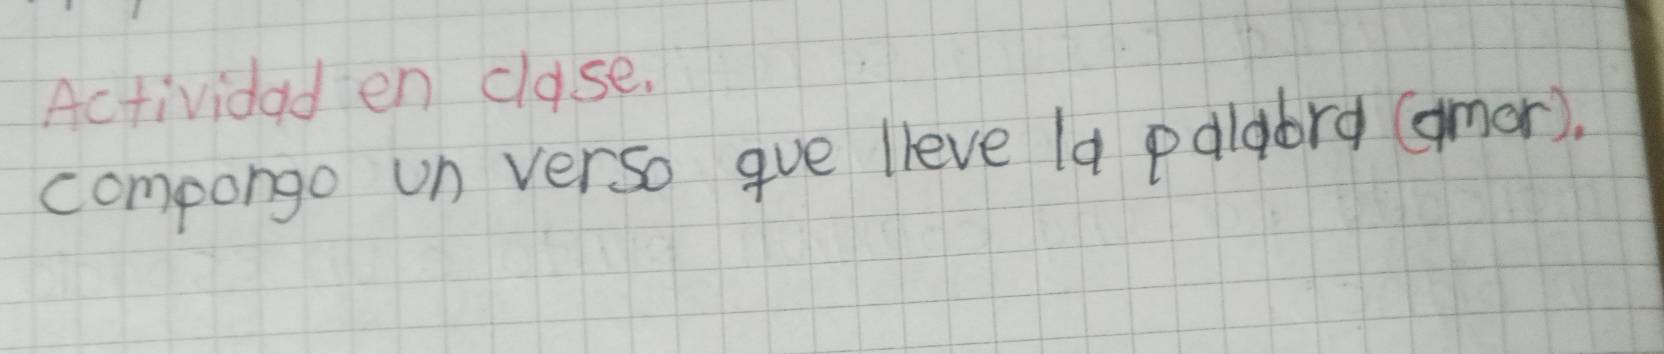 Actividad en clase.
compongo un verso que lleve la palabra (amor).